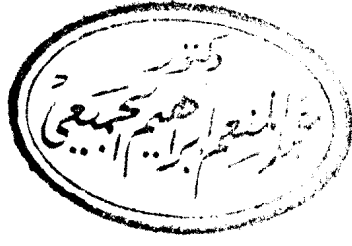 دكتور
عبد المنعم إبراهيم الجميعي